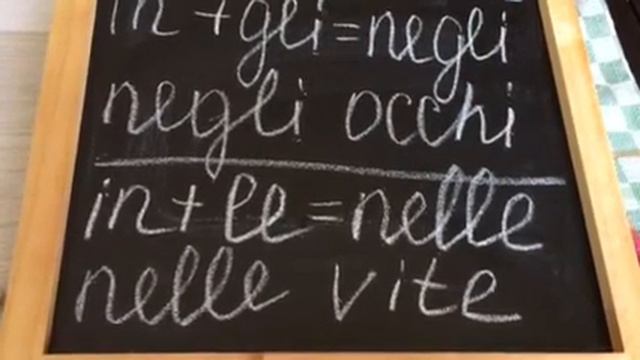 in + gli = negli
negli occhi
in + le = nelle
nelle vite